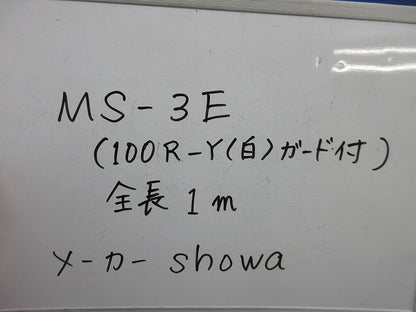 MS-3E
(100R-Y(白)ガード付)
全長 1m
メーカー showa